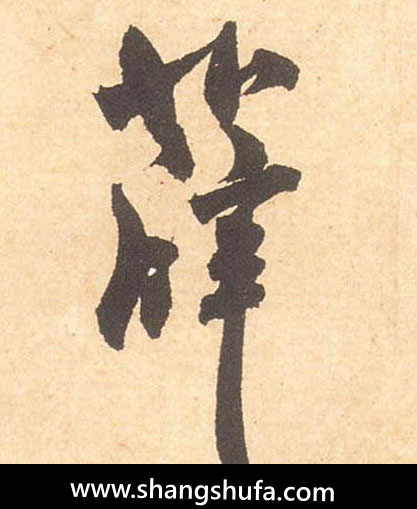 薛
www.shangshufa.com